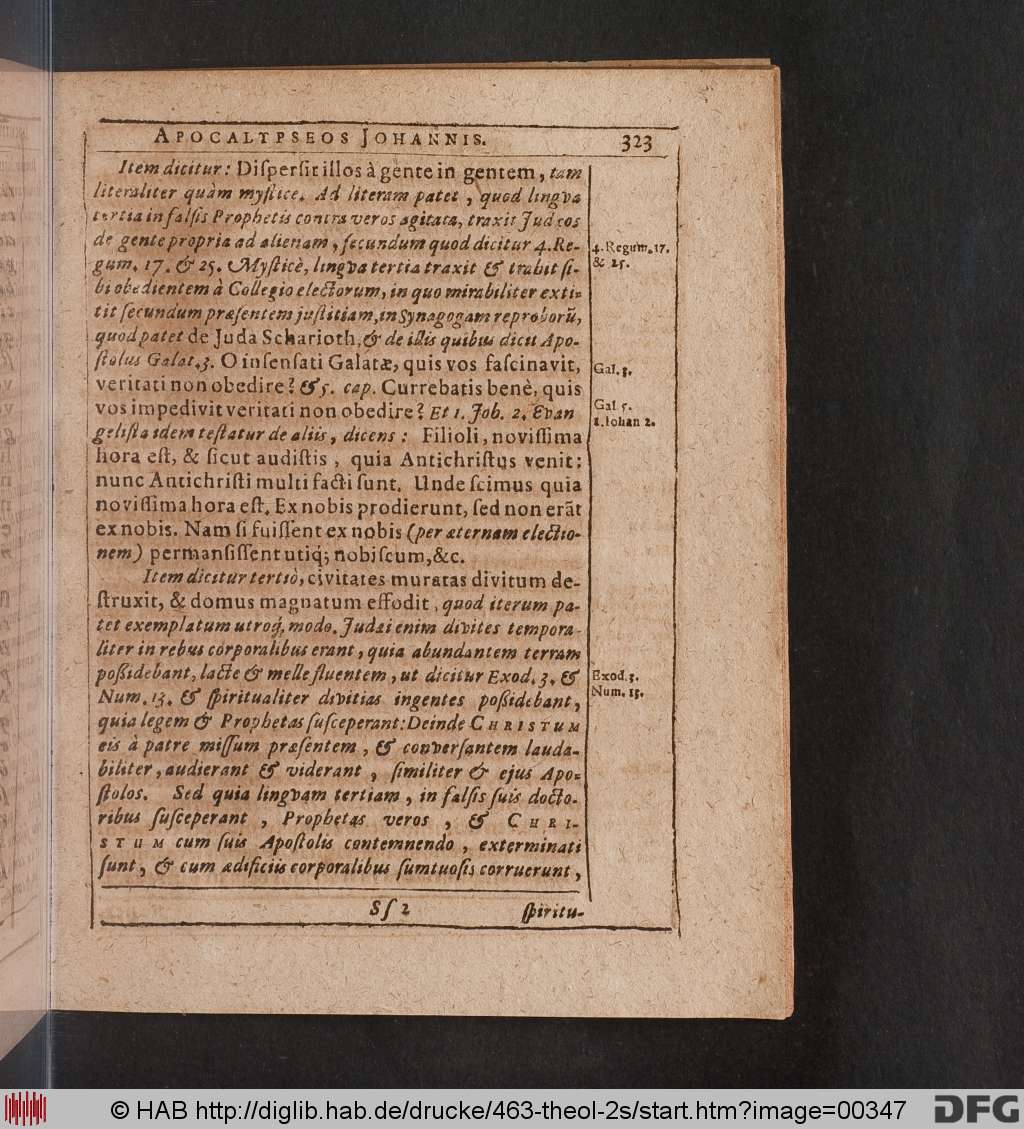 APOCALYPSEOS JOHANNIS. 323
Item dicitur: Diſperſit illos à gente in gentem, tam
literaliter quàm myſtice. Ad literam patet, quod lingva
tertia in falſis Prophetis contra veros agitata, traxit Judæos
de gente propria ad alienam, ſecundum quod dicitur 4. Re-
gum. 17. & 25. Myſticè, lingva tertia traxit & trahit ſi-
bi obedientem à Collegio electorum, in quo mirabiliter exti-
tit ſecundum præſentem juſtitiam, in Synagogam reproborū,
quod patet de Juda Scharioth, & de illis quibus dicit Apo-
ſtolus Galat. 3. O inſenſati Galatæ, quis vos faſcinavit,
veritati non obedire? & 5. cap. Currebatis benè, quis
vos impedivit veritati non obedire? Et 1. Joh. 2. Evan
geliſta idem teſtatur de aliis, dicens: Filioli, noviſſima
hora eſt, & ſicut audiſtis, quia Antichriſtus venit:
nunc Antichriſti multi facti ſunt. Unde ſcimus quia
noviſſima hora eſt. Ex nobis prodierunt, ſed non erāt
ex nobis. Nam ſi fuiſſent ex nobis (per æternam electio-
nem) permanſiſſent utiq; nobiſcum, &c.
Item dicitur tertiò, civitates muratas divitum de-
ſtruxit, & domus magnatum effodit, quod iterum pa-
tet exemplatum utroq; modo. Judæi enim divites tempora-
liter in rebus corporalibus erant, quia abundantem terram
poßidebant, lacte & melle fluentem, ut dicitur Exod. 3. &
Num. 13. & ſpiritualiter divitias ingentes poßidebant,
quia legem & Prophetas ſuſceperant: Deinde CHRISTUM
eis à patre miſſum præſentem, & converſantem lauda-
biliter, audierant & viderant, ſimiliter & ejus Apo-
ſtolos. Sed quia lingvam tertiam, in falſis ſuis docto-
ribus ſuſceperant, Prophetas veros, & CHRI-
STUM cum ſuis Apoſtolis contemnendo, exterminati
ſunt, & cum ædificiis corporalibus ſumtuoſis corruerunt,
Sſ 2 ſpiritu-
4. Regum. 17.
& 25.
Gal. 3.
Gal 5.
1. Iohan 2.
Exod. 3.
Num. 13.
© HAB http://diglib.hab.de/drucke/463-theol-2s/start.htm?image=00347 DFG